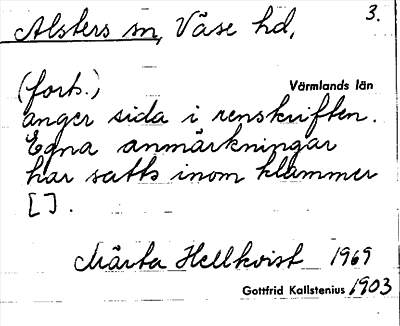 Alsters sn, Väse hd, 3.
Värmlands län
(forts.)
anger sida i renskriften.
Egna anmärkningar
har satts inom klammer
[ ].
Märta Hellkvist 1969
Gottfrid Kallstenius 1903